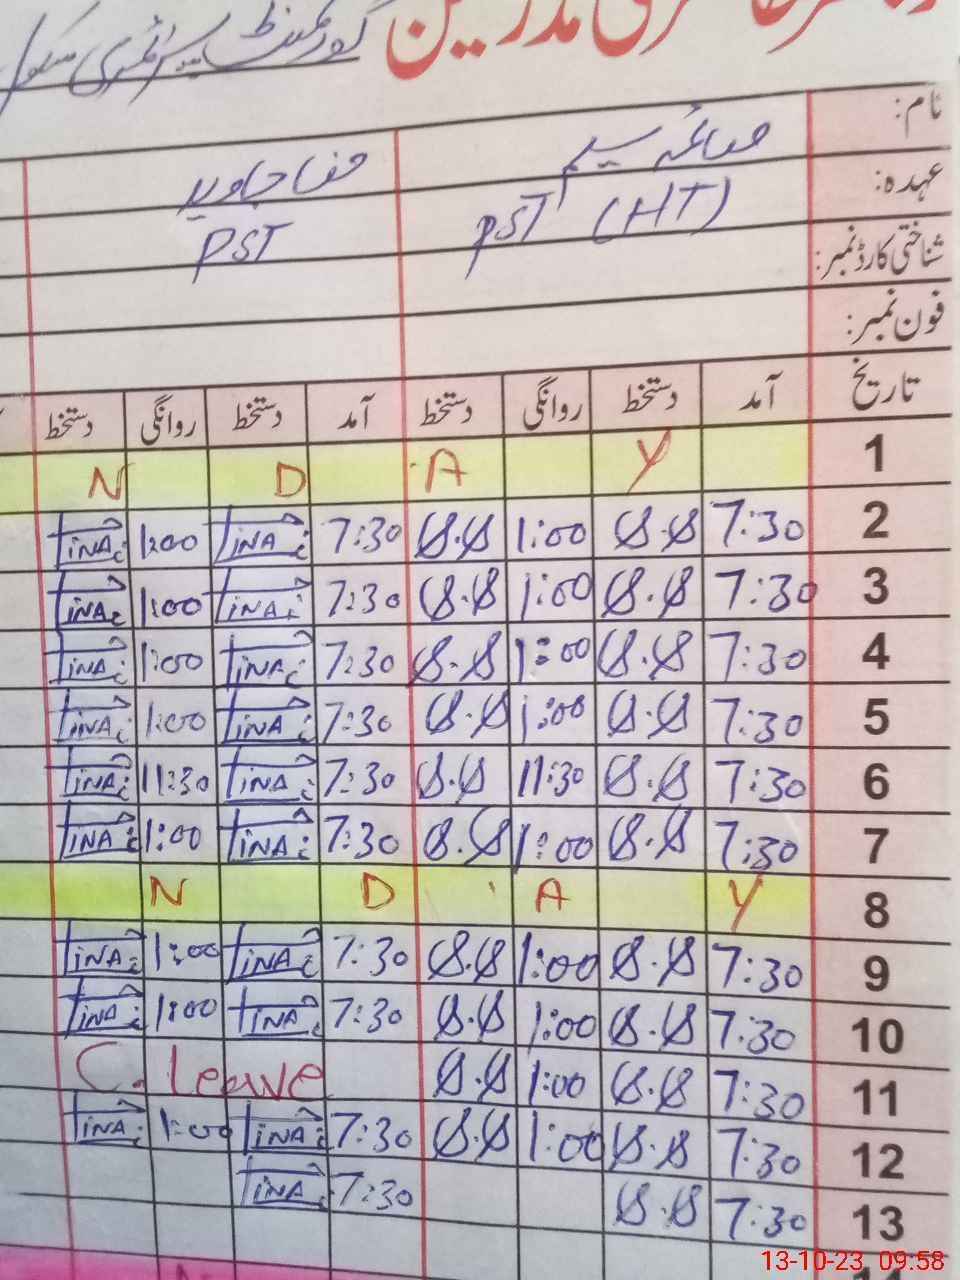 گورنمنٹ پرائمری سکول
مدرسین
نام: صائمہ سلیم حنا جاوید
عہدہ: PST (HT) PST
شناختی کارڈ نمبر:
فون نمبر:
تاریخ آمد دستخط روانگی دستخط آمد دستخط روانگی دستخط
1 Y A D N
2 7:30 S.S 1:00 S.S 7:30 HINA 1:00 HINA
3 7:30 S.S 1:00 S.S 7:30 HINA 1:00 HINA
4 7:30 S.S 1:00 S.S 7:30 HINA 1:00 HINA
5 7:30 S.S 1:00 S.S 7:30 HINA 1:00 HINA
6 7:30 S.S 11:30 S.S 7:30 HINA 11:30 HINA
7 7:30 S.S 1:00 S.S 7:30 HINA 1:00 HINA
8 Y A D N
9 7:30 S.S 1:00 S.S 7:30 HINA 1:00 HINA
10 7:30 S.S 1:00 S.S 7:30 HINA 1:00 HINA
11 7:30 S.S 1:00 S.S C. leave
12 7:30 S.S 1:00 S.S 7:30 HINA 1:00 HINA
13 7:30 S.S 7:30 HINA
13-10-23 09:58